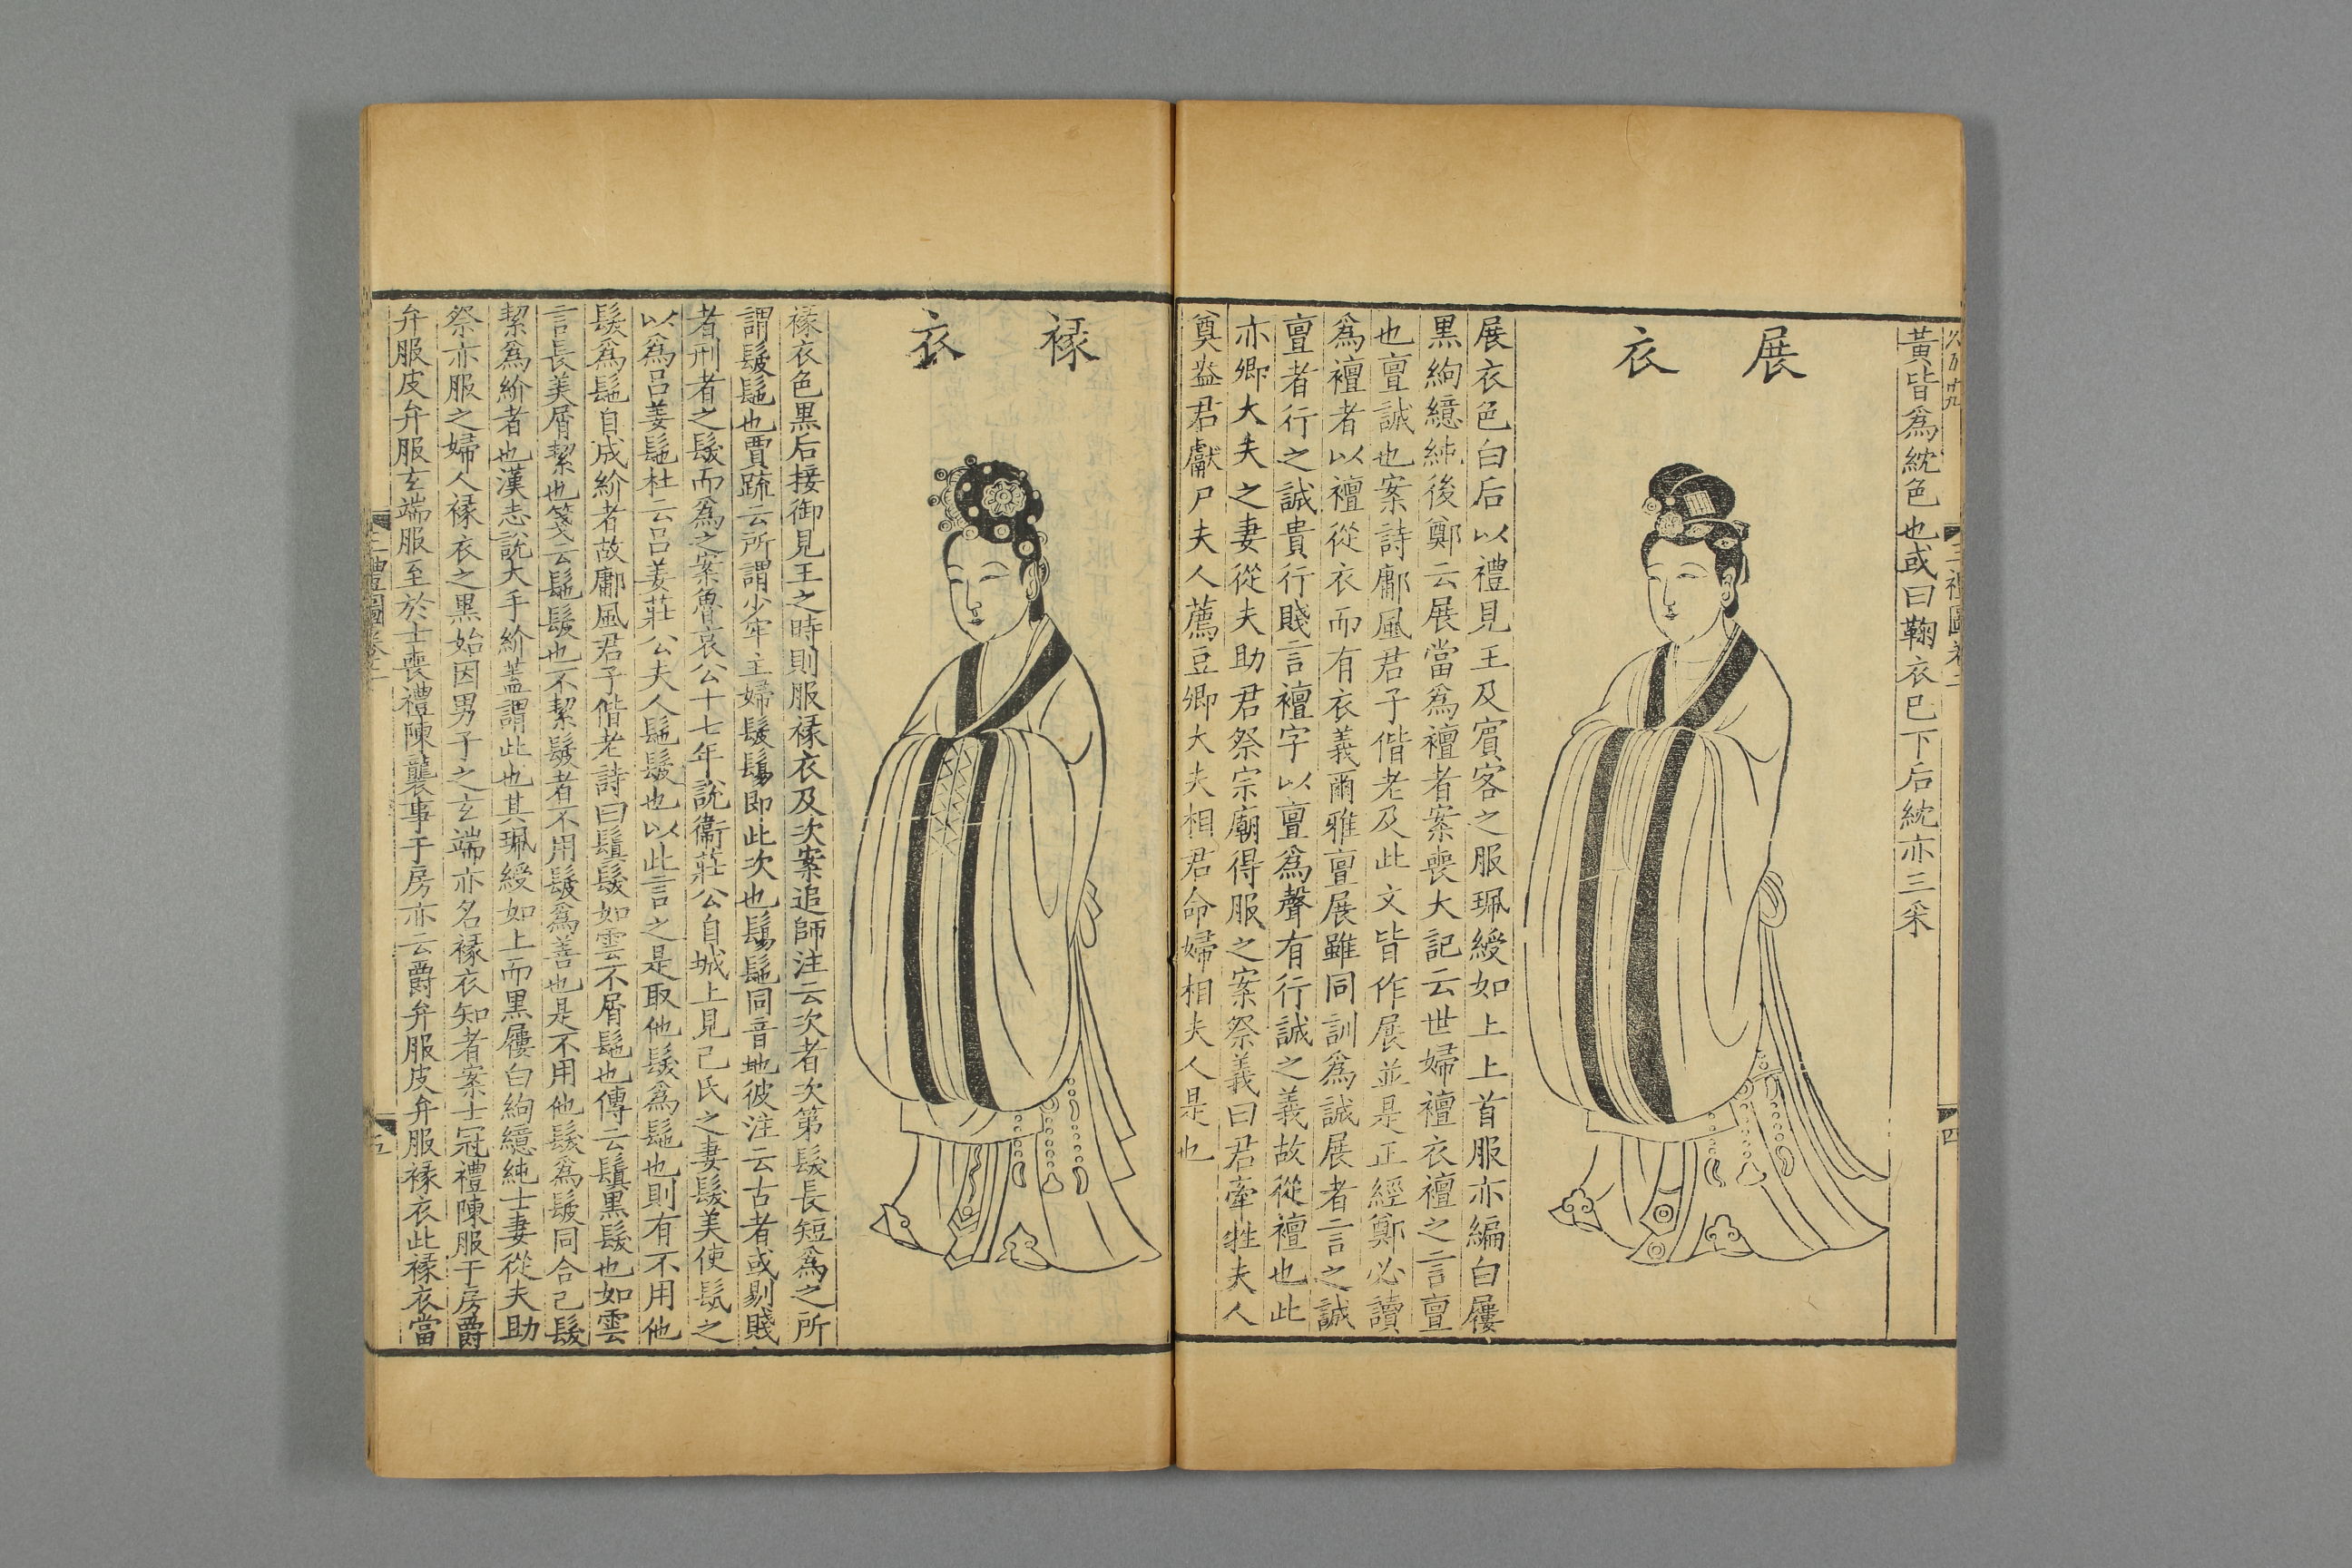 黃皆爲紞色也或曰鞠衣已下后紞亦三采
展衣
展衣色白后以禮見王及賓客之服珮綬如上上首服亦編白屨
黑絇繶純後鄭云展當爲襢者案喪大記云世婦襢衣襢之言亶
也亶誠也案詩鄘風君子偕老及此文皆作展並是正經鄭必讀
爲襢者以襢從衣而有衣義爾雅亶展雖同訓爲誠展者言之誠
亶者行之誠貴行賤言襢字以亶爲聲有行誠之義故從襢也此
亦卿大夫之妻從夫助君祭宗廟得服之案祭義曰君牽牲夫人
奠盎君獻尸夫人薦豆卿大夫相君命婦相夫人是也
三禮圖卷二
四
褖衣
褖衣色黑后接御見王之時則服褖衣及次案追師注云次者次第髮長短爲之所
謂髲髢也賈疏云所謂少牢主婦髲鬄即此次也鬄髢同音地彼注云古者或剔賤
者刑者之髮而爲之案魯哀公十七年說衞莊公自城上見己氏之妻髮美使髡之
以爲呂姜髢杜云呂姜莊公夫人髢髲也以此言之是取他髮爲髢也則有不用他
髮爲髢自成紒者故鄘風君子偕老詩曰鬒髮如雲不屑髢也傳云鬒黑髮也如雲
言長美屑絜也箋云髢髲也不絜髲者不用髲爲善也是不用他髮爲髲同合己髮
絜爲紒者也漢志說大手紒蓋謂此也其珮綬如上而黑屨白絇繶純士妻從夫助
祭亦服之婦人褖衣之黑始因男子之玄端亦名褖衣知者案士冠禮陳服于房爵
弁服皮弁服玄端服至於士喪禮陳襲事于房亦云爵弁服皮弁服褖衣此褖衣當
三禮圖卷二
五